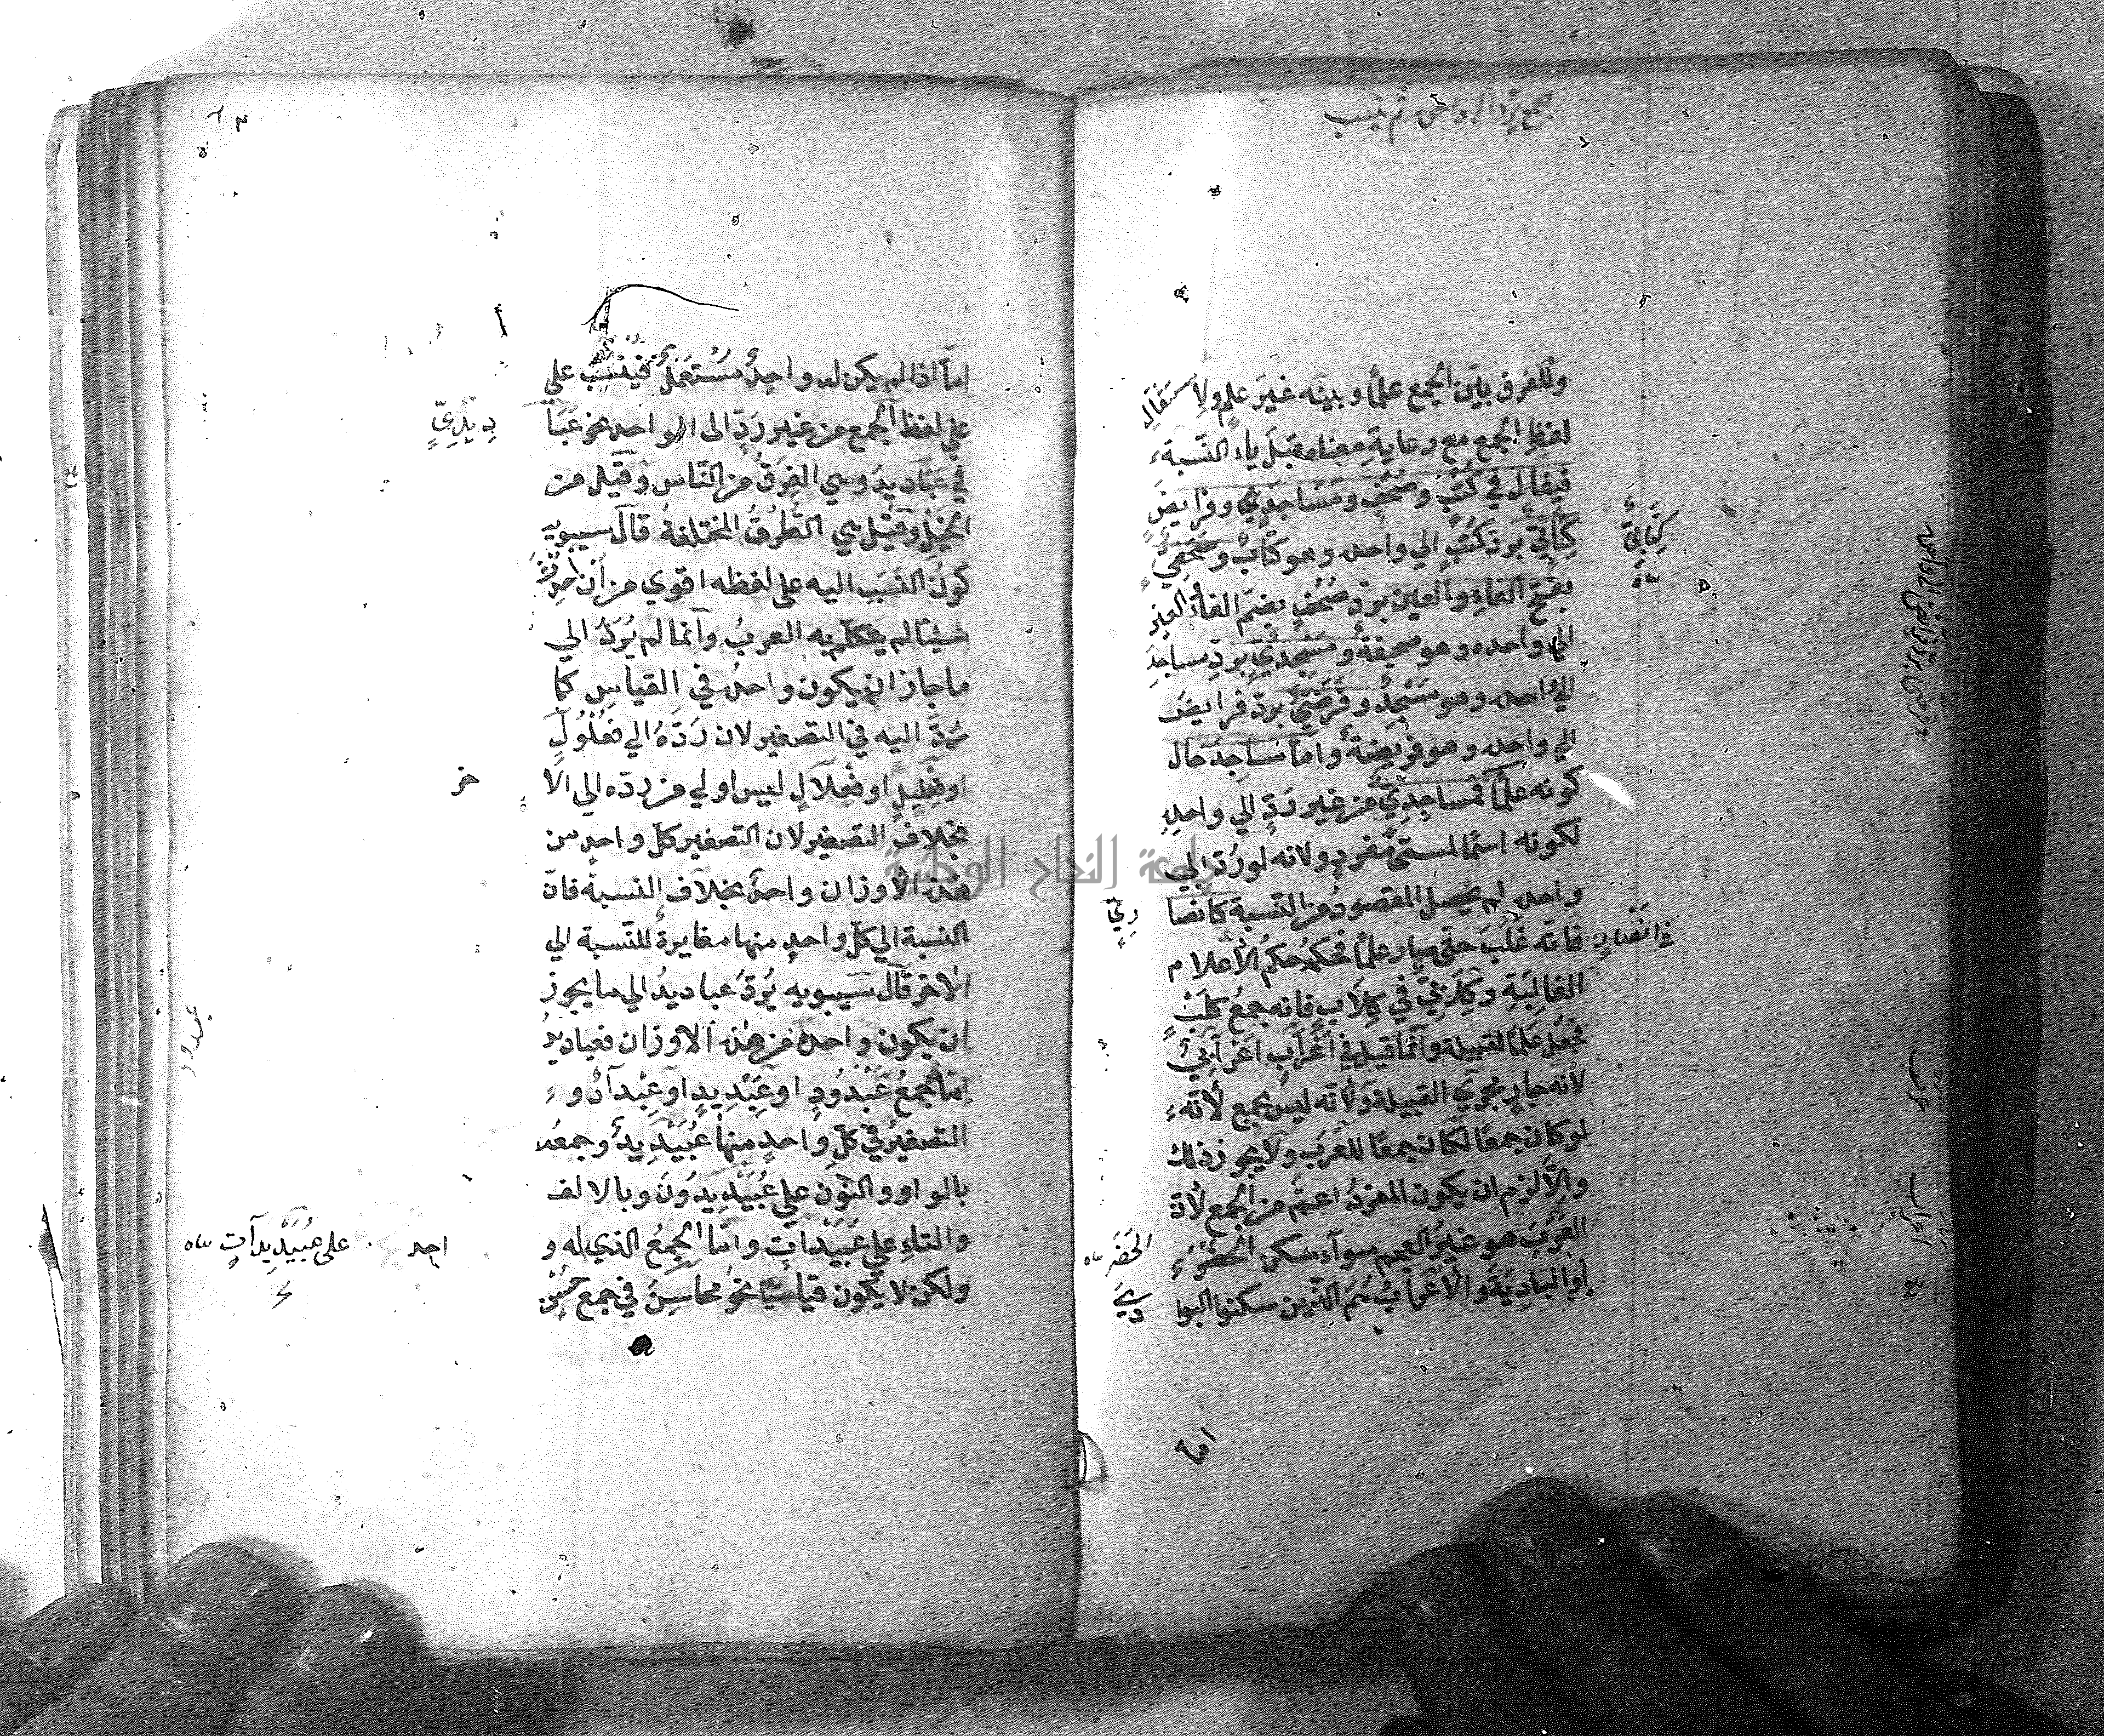 الجمع يرد الى واحده ثم ينسب
وللفرق بين الجمع علمًا وبينه غيرَ علمٍ ولاستثقال
لفظِ الجمع مع رعايةِ معناه قبلَ ياء النسبة
فيقال في كُتُبٍ وصُحُفٍ ومَسَاجِدَ وفرايضَ
كِتَابِيٌّ برد كُتُبٍ الي واحده وهو كتابٌ وصَحَفِيٌّ
كِتَابِيٌّ
بفتح الفاءِ والعين بردِّ صُحُفٍ بضم الفاء والعين
الي واحده وهو صحيفةٌ ومَسْجِدِيٌّ بردِّ مساجدَ
الي واحده وهو مَسْجِدٌ وفَرَضِيٌّ بردّ فرايضَ
الي واحده وهو فريضةٌ وامّا مساجدُ حال
كونه علمًا فمساجِدِيٌّ من غير رَدٍّ الي واحدِهِ
لكونه اسمًا لمسمّي مفردٍ ولانه لو رُدّ الي
واحده لم يحصل المقصودُ من النسبة كانصا
رِيّ
في انصارٍ
فانه غَلَبَ حتّي صار علمًا فحكمُه حكمُ الأعلام
الغالِبَةِ وكِلَابِيٍّ في كِلَابٍ فانه جمعُ كلبٍ
فجُعل عَلَمًا لقبيلة وانّما قيل في أعْرَابٍ اَعْرَابِيٌّ
لأنه جارٍ مجري القبيلة ولأنّه ليس بجمع لأنّه
لو كان جمعًا لكان جمعًا للعَرَب ولا يجوز ذلك
والّا لزم ان يكون المفردُ اعمَّ من الجمع لأنّ
العَرَبَ هو غيرُ العجم سوآء سكن الحَضَرَ
الحَضَر
أو البادِيَةَ والأعْرابُ هُمُ الذين سكنوا البوا
دِيَ
اما
امّا اذا لم يكن له واحِدٌ مُسْتَعْمَلٌ فيُنْسَبُ علي
علي لفظ الجمع من غير رَدٍّ الي الواحد نحو عَبَا
دِيدِيٍّ
في عَبَاديدَ وهي الفِرَقُ من النّاس وقيل من
الخيل وقيل هي الطُرُقُ المختلفةُ قال سيبويه
كونُ النَسَبِ اليه علي لفظه اقوي من أن أُحدِثَ
شيئًا لم يتكلّم به العربُ وانما لم يُرَدَّ الي
ما جاز ان يكون واحدَه في القياسِ كما
رُدَّ اليه في التصغير لان رَدَّهُ الي فُعْلُولٍ
او فِعْلِيلٍ او فِعْلَالٍ ليس اولي من رده الي الآ
خر
بخلاف التصغير لان التصغير كلّ واحدٍ من
هذه الأوزان واحدٌ بخلاف النسبة فانّ
النسبة الي كلّ واحدٍ منها مغايرةٌ للنّسبة الي
الآخر قال سيبويه يُرَدُّ عباديدُ الي ما يجوز
ان يكون واحدَه من هذه الاوزان فعباديدُ
امّا جمعُ عُبْدُودٍ او عِبْدِيدٍ او عِبْدَادٍ و
التصغيرُ في كلِّ واحدٍ منها عُبَيْدِيدٌ وجمعُه
بالواو والنون علي عُبَيْدِيدُونَ وبالالف
والتاءِ علي عُبَيْدِيدَاتٍ وامّا الجمعُ الذي له و
احد
علي عُبَيْدِيدَاتٍ
ولكن لا يكون قياسيًّا نحوُ محاسِنَ في جمع حُسْنٍ